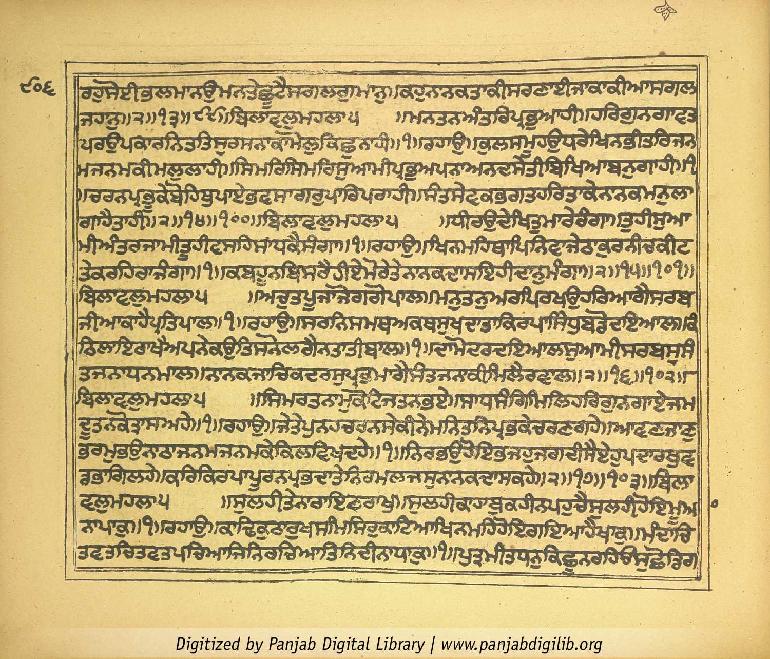 ੯੦੬
ਰਹੁਸੋਈਭਲਮਾਨਉਮਨਤੇਛੂਟੈਸਗਲਗੁਮਾਨੁ॥ਕਹੁਨਾਨਕਤਾਕੀਸਰਣਾਈਜਾਕਾਕੀਆਸਗਲ
ਜਹਾਨੁ॥੨॥੧੩॥੯੯॥ਬਿਲਾਵਲੁਮਹਲਾ੫ ॥ਮਨਤਨਅੰਤਰਿਪ੍ਰਭੁਆਹੀ॥ਹਰਿਗੁਨਗਾਵਤ
ਪਰਉਪਕਾਰਨਿਤਤਿਸੁਰਸਨਾਕਾਮੋਲੁਕਿਛੁਨਾਹੀ॥੧॥ਰਹਾਉ॥ਕੁਲਸਮੂਹਉਧਰੇਖਿਨਭੀਤਰਿਜਨ
ਮਜਨਮਕੀਮਲੁਲਾਹੀ॥ਸਿਮਰਿਸਿਮਰਿਸੁਆਮੀਪ੍ਰਭੁਅਪਨਾਅਨਦਸੇਤੀਬਿਖਿਆਬਨੁਗਾਹੀ॥੧
॥ਚਰਨਪ੍ਰਭੂਕੇਬੋਹਿਥੁਪਾਏਭਵਸਾਗਰੁਪਾਰਿਪਰਾਹੀ॥ਸੰਤਸੇਵਕਭਗਤਹਰਿਤਾਕੇਨਾਨਕਮਨੁਲਾ
ਗਾਹੈਤਾਹੀ॥੨॥੧੪॥੧੦੦॥ਬਿਲਾਵਲੁਮਹਲਾ੫ ॥ਧੀਰਉਦੇਖਿਤੁਮਾਰੈਰੰਗਾ॥ਤੁਹੀਸੁਆ
ਮੀਅੰਤਰਜਾਮੀਤੂਹੀਵਸਹਿਸਾਧਕੈਸੰਗਾ॥੧॥ਰਹਾਉ॥ਖਿਨਮਹਿਥਾਪਿਨਿਵਾਜੇਠਾਕੁਰਨੀਚਕੀਟ
ਤੇਕਰਹਿਰਾਜੰਗਾ॥੧॥ਕਬਹੂਨਬਿਸਰੈਹੀਏਮੋਰੇਤੇਨਾਨਕਦਾਸਇਹੀਦਾਨੁਮੰਗਾ॥੨॥੧੫॥੧੦੧॥
ਬਿਲਾਵਲੁਮਹਲਾ੫ ॥ਅਚੁਤਪੂਜਾਜੋਗਗੋਪਾਲ॥ਮਨੁਤਨੁਅਰਪਿਰਖਉਹਰਿਆਗੈਸਰਬ
ਜੀਆਕਾਹੈਪ੍ਰਤਿਪਾਲ॥੧॥ਰਹਾਉ॥ਸਰਨਿਸਮ੍ਰਥਅਕਥਸੁਖਦਾਤਾਕਿਰਪਾਸਿੰਧੁਬਡੋਦਇਆਲ॥ਕੰ
ਠਿਲਾਇਰਾਖੈਅਪਨੇਕਉਤਿਸਨੋਲਗੈਨਤਾਤੀਬਾਲ॥੧॥ਦਾਮੋਦਰਦਇਆਲਸੁਆਮੀਸਰਬਸੁਸੰ
ਤਜਨਾਧਨਮਾਲ॥ਨਾਨਕਜਾਚਿਕਦਰਸੁਪ੍ਰਭਮਾਗੈਸੰਤਜਨਾਕੀਮਿਲੈਰਵਾਲ॥੨॥੧੬॥੧੦੨॥
ਬਿਲਾਵਲੁਮਹਲਾ੫ ॥ਸਿਮਰਤਨਾਮੁਕੋਟਿਜਤਨਭਏ॥ਸਾਧਸੰਗਿਮਿਲਿਹਰਿਗੁਨਗਾਏਜਮ
ਦੂਤਨਕੋਤ੍ਰਾਸਅਹੇ॥੧॥ਰਹਾਉ॥ਜੇਤੇਪੁਨਹਚਰਨਸੇਕੀਨੇਮਨਿਤਨਿਪ੍ਰਭਕੇਚਰਣਗਹੇ॥ਆਵਣਜਾਣੁ
ਭਰਮੁਭਉਨਾਠਾਜਨਮਜਨਮਕੇਕਿਲਵਿਖਦਹੇ॥੧॥ਨਿਰਭਉਹੋਇਭਜਹੁਜਗਦੀਸੈਏਹੁਪਦਾਰਥੁਵ
ਡਭਾਗਿਲਹੇ॥ਕਰਿਕਿਰਪਾਪੂਰਨਪ੍ਰਭਦਾਤੇਨਿਰਮਲਜਸੁਨਾਨਕਦਾਸਕਹੇ॥੨॥੧੭॥੧੦੩॥ਬਿਲਾ
ਵਲੁਮਹਲਾ੫ ॥ਸੁਲਹੀਤੇਨਾਰਾਇਣਰਾਖੁ॥ਸੁਲਹੀਕਾਹਾਥੁਕਹੀਨਪਹੁਚੈਸੁਲਹੀਹੋਇਮੂਆ
ਨਾਪਾਕੁ॥੧॥ਰਹਾਉ॥ਕਾਢਿਕੁਠਾਰੁਖਸਮਿਸਿਰੁਕਾਟਿਆਖਿਨਮਹਿਹੋਇਗਇਆਹੈਖਾਕੁ॥ਮੰਦਾਚਿ
ਤਵਤਚਿਤਵਤਪਚਿਆਜਿਨਿਰਚਿਆਤਿਨਿਦੀਨਾਧਾਕੁ॥੧॥ਪੁਤ੍ਰਮੀਤਧਨੁਕਿਛੂਨਰਹਿਓਸੁਛੋਡਿਗ
Digitized by Panjab Digital Library | www.panjabdigilib.org